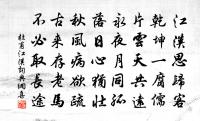 江漢思歸客
乾坤一腐儒
片雲天共遠
永夜月同孤
落日心猶壯
秋風病欲蘇
古來存老馬
不必取長途
杜甫江漢詩